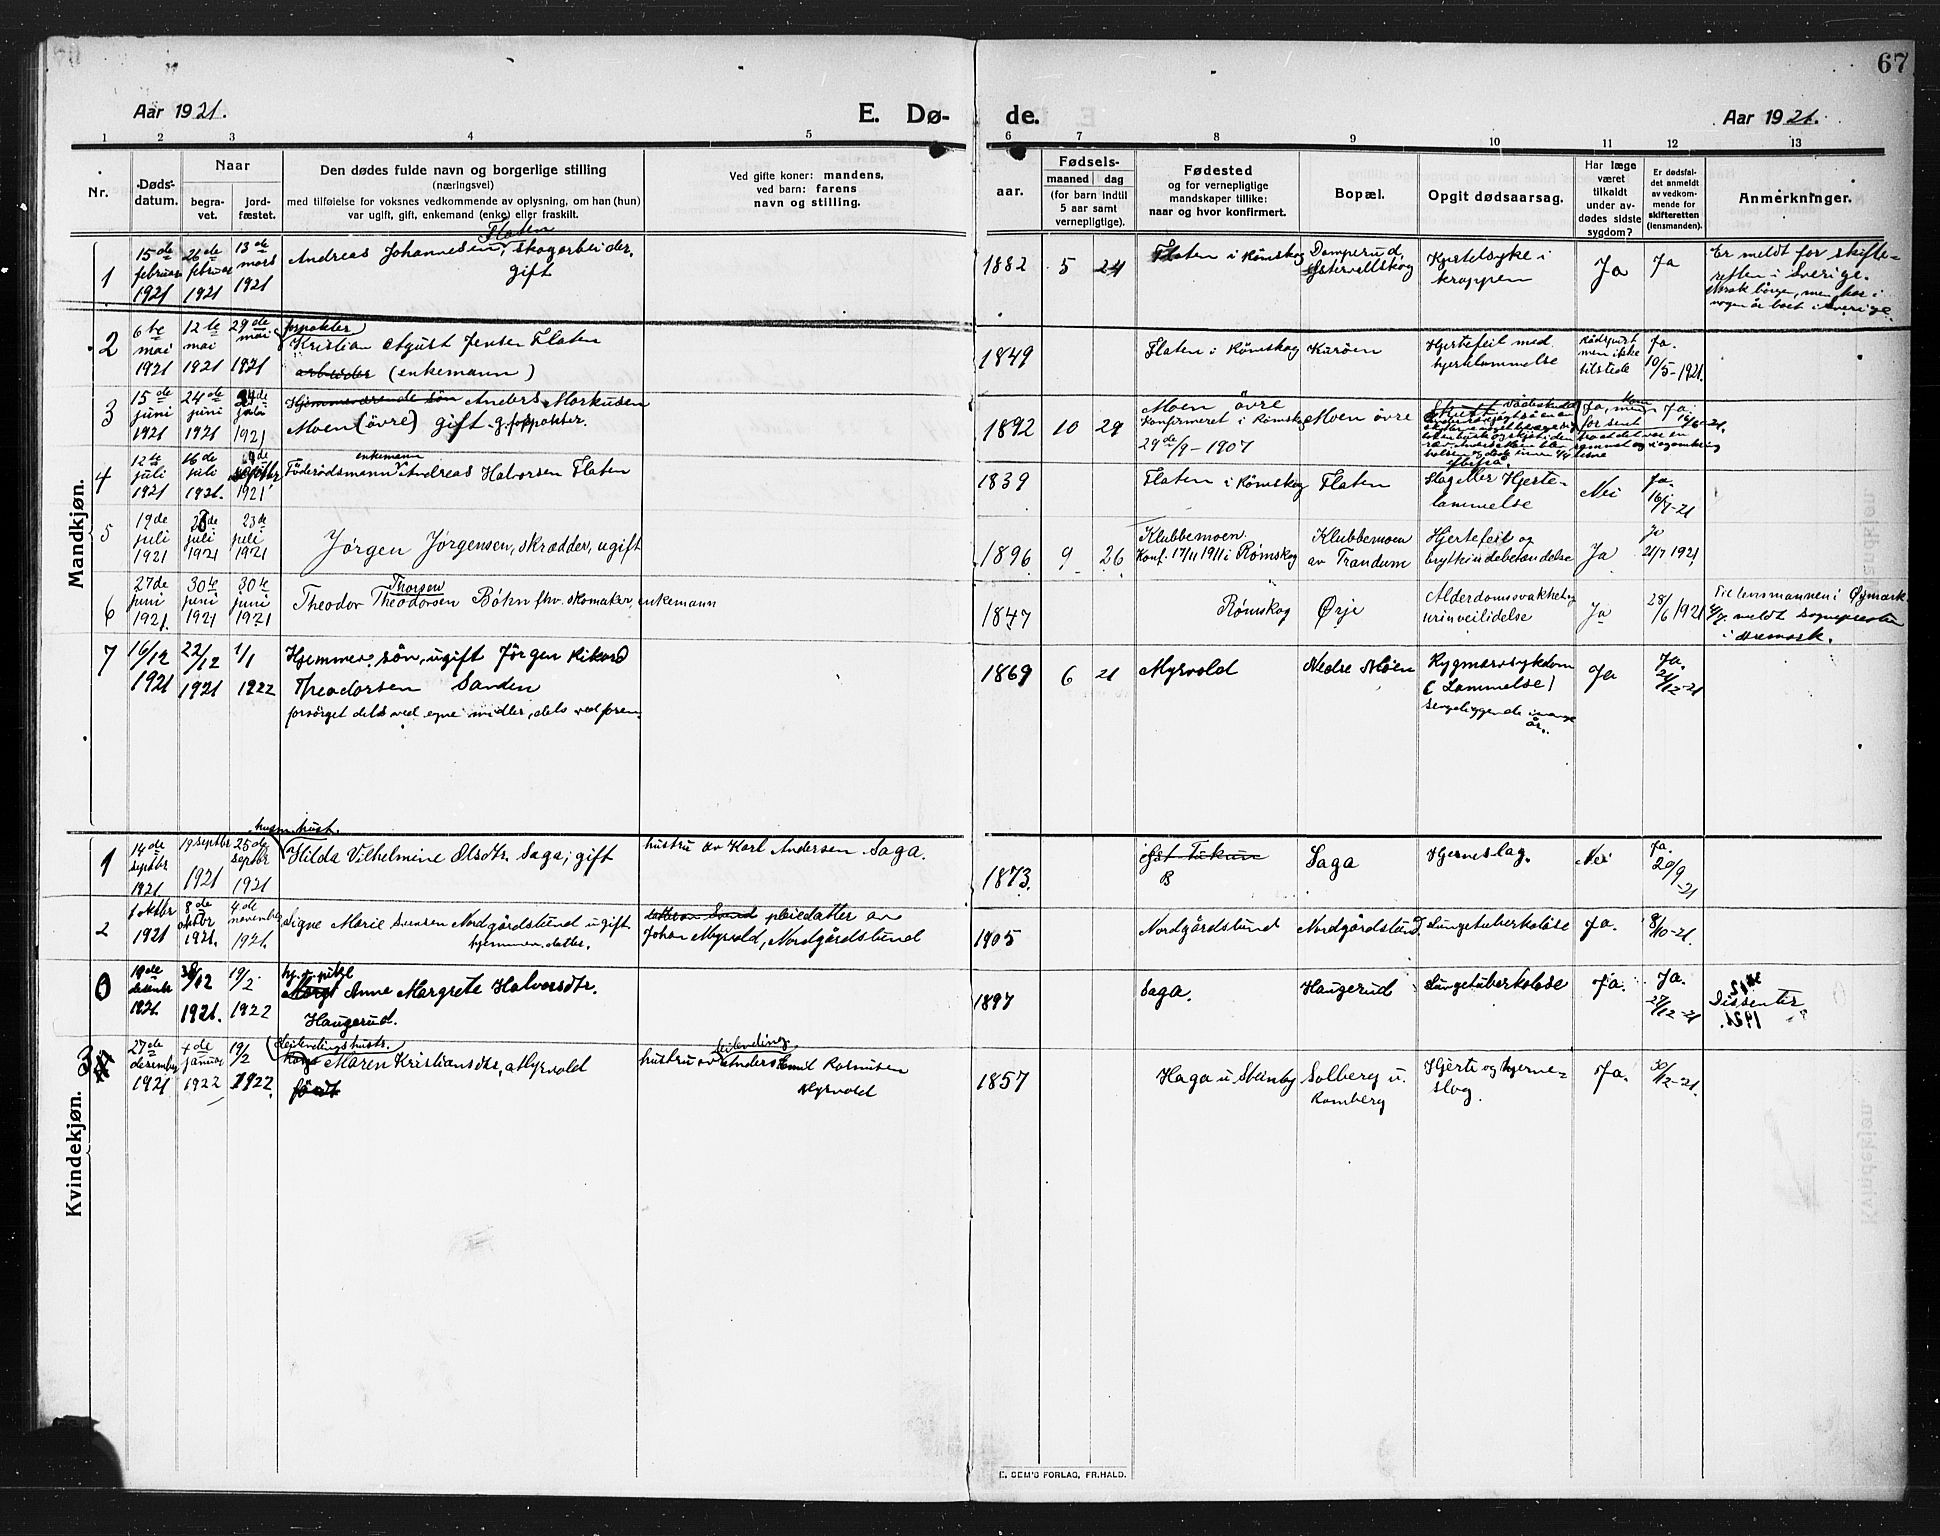 67
Aar 1921.
E. Dø-
de.
Aar 1921.
1 2 3 4 5 6 7 8 9 10 11 12 13
Nr.
Døds-
datum.
Naar
begra-
vet.
jord-
fæstet.
Den dødes fulde navn og borgerlige stilling
(næringsvei)
med tilføielse for voksnes vedkommende av oplysning, om han (hun)
var ugift, gift, enkemand (enke) eller fraskilt.
Ved gifte koner: mandens,
ved barn: farens
navn og stilling.
aar.
Fødsels-
maaned dag
(for barn indtil
5 aar samt
vernepligtige).
Fødested
og for vernepligtige
mandskaper tillike:
naar og hvor konfirmert.
Bopæl.
Opgit dødsaarsag.
Har læge
været
tilkaldt
under av-
dødes sidste
sygdom?
Er dødsfal-
det anmeldt
av vedkom-
mende for
skifteretten
(lensmanden).
Anmerkninger.
Mandkjøn.
1
15de februar 1921
26de februar 1921
13de mars 1921
Flaten
Andreas Johannesen, skogarbeider,
gift
1882 5 24
Flaten i Rømskog
Damperud, Østervallskog
Kjertelsyke i
kroppen
Ja
Ja
Er meldt for skifte-
retten i Sverige.
Norsk borger, men har i
nogen år boet i Sverige.
2
6te mai 1921
12te mai 1921
29de mai 1921
forpakter
Kristian August Jensen Flaten
arbeider (enkemann)
1849
Flaten i Rømskog
Kurøen
Hjertefeil med
hjertelammelse
Rådspurt
men ikke
tilstede
Ja.
10/5-1921.
3
15de juni 1921
24de juni 1921
24de juli 1921
Hjemmeværende søn Anders Markusen
Moen (övre) gift g. forpakter.
1892 10 29
Moen övre
Konfirmeret i Rømskog
29de/9 - 1907
Moen övre
Skutt
Ja, men kom
for sent
Ja.
16/6-21.
4
12te juli 1921
16de juli 1921.
1921
enkemann
Föderådsmann Andreas Halvorsen Flaten
1839
Flaten i Rømskog
Flaten
Slag eller Hjerte-
lammelse
Nei
Ja.
16/7-21
5
19de juli 1921
juli 1921
23de juli 1921
Jørgen Jørgensen, skrædder, ugift
1896 9 26
Klubbemoen.
Konf. 17/11 1911 i Rømskog
Klubbemoen
av Trandum
Hjertefeil og
brytkindebetændelse
Ja
Ja
21/7 1921
6
27de juni 1921.
30te juni 1921
30te juni 1921
Thorsen
Theodor Theodorsen Bøhn fhv. skomaker, enkemann
1847
Rømskog
Ørje
Alderdomssvakhet og
urinveilidelse
Ja
28/6 1921
Til lensmannen i Øymark.
meldt Sognepresten
i Aremark.
7
16/12 1921
22/12 1921
1/1 1922
Hjemmev. søn, ugift Jørgen Rikard
Theodorsen Sanden
forsørget dels ved egne midler, dels ved foren.
1869 6 21
Myrvold
Nedre Moen
Rygmarvsykdom
(Lammelse)
Sengeliggende i mange
år.
Ja
Ja.
21/12-21
Kvindekjøn.
1
14de septbr 1921
19 septbr 1921
25de septbr 1921
husm. hust.
Hilda Vilhelmine Olsdtr. Saga; gift
hustru av Karl Andersen Saga.
1873.
B
Saga
Hjerneslag.
Nei
Ja.
20/9-21
2
1 oktbr 1921
8de oktbr 1921.
4de november 1921
Signe Marie Svensen Nordgårdslund ugift
hjemmev. datter.
pleiedatter av
Johan Myrvold, Nordgårdslund
1905
Nordgårdslund
Nordgårdslund.
Lungetuberkuløse
Ja.
8/10-21.
0
19de desembr 1921.
/12 1921.
19/2 1922
hj. v. pike
Anne Margrete Halvorsdtr.
Haugerud.
1897
Saga.
Haugerud
Lungetuberkolose
Ja.
Ja.
27/12-21
Dissenter
1921.
3
27de desember 1921
4de januar 1922
19/2 1922.
Leilendingshustr.
Maren Kristiansdtr. Myrvold
født
leilending
hustru av Anders Emil Rasmusen
Myrvold
1857
Haga u Stenby
Solberg u.
Ramberg
Hjerte og hjerne-
slag.
Ja.
30/12-21.
E. SEM'S FORLAG, FR.HALD.